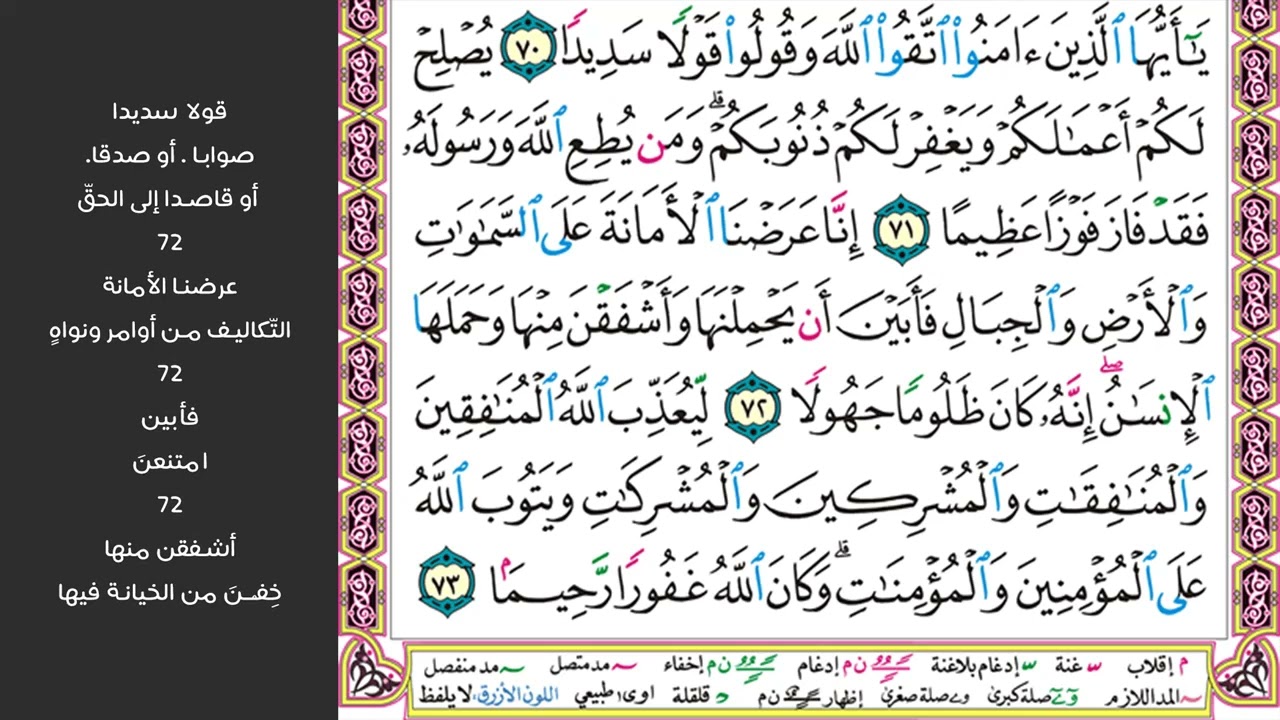 يَٰٓأَيُّهَا ٱلَّذِينَ ءَامَنُوا۟ ٱتَّقُوا۟ ٱللَّهَ وَقُولُوا۟ قَوْلًا سَدِيدًا ٧٠ يُصْلِحْ
لَكُمْ أَعْمَٰلَكُمْ وَيَغْفِرْ لَكُمْ ذُنُوبَكُمْ ۗ وَمَن يُطِعِ ٱللَّهَ وَرَسُولَهُۥ
فَقَدْ فَازَ فَوْزًا عَظِيمًا ٧١ إِنَّا عَرَضْنَا ٱلْأَمَانَةَ عَلَى ٱلسَّمَٰوَٰتِ
وَٱلْأَرْضِ وَٱلْجِبَالِ فَأَبَيْنَ أَن يَحْمِلْنَهَا وَأَشْفَقْنَ مِنْهَا وَحَمَلَهَا
ٱلْإِنسَٰنُ ۖ إِنَّهُۥ كَانَ ظَلُومًا جَهُولًا ٧٢ لِّيُعَذِّبَ ٱللَّهُ ٱلْمُنَٰفِقِينَ
وَٱلْمُنَٰفِقَٰتِ وَٱلْمُشْرِكِينَ وَٱلْمُشْرِكَٰتِ وَيَتُوبَ ٱللَّهُ
عَلَى ٱلْمُؤْمِنِينَ وَٱلْمُؤْمِنَٰتِ ۗ وَكَانَ ٱللَّهُ غَفُورًا رَّحِيمًۢا ٧٣
م إقلاب غنة إدغام بلاغنة ن م إدغام ن م إخفاء مد متصل مد منفصل
المد اللازم و ے صلة كبرى و ے صلة صغرى إظهار ن م قلقلة اوى طبيعي اللون الأزرق لا يلفظ
قولا سديدا
صوابا . أو صدقا.
أو قاصدا إلى الحقّ
72
عرضنا الأمانة
التّكاليف من أوامر ونواهٍ
72
فأبين
امتنعنَ
72
أشفقن منها
خِفنَ من الخيانة فيها